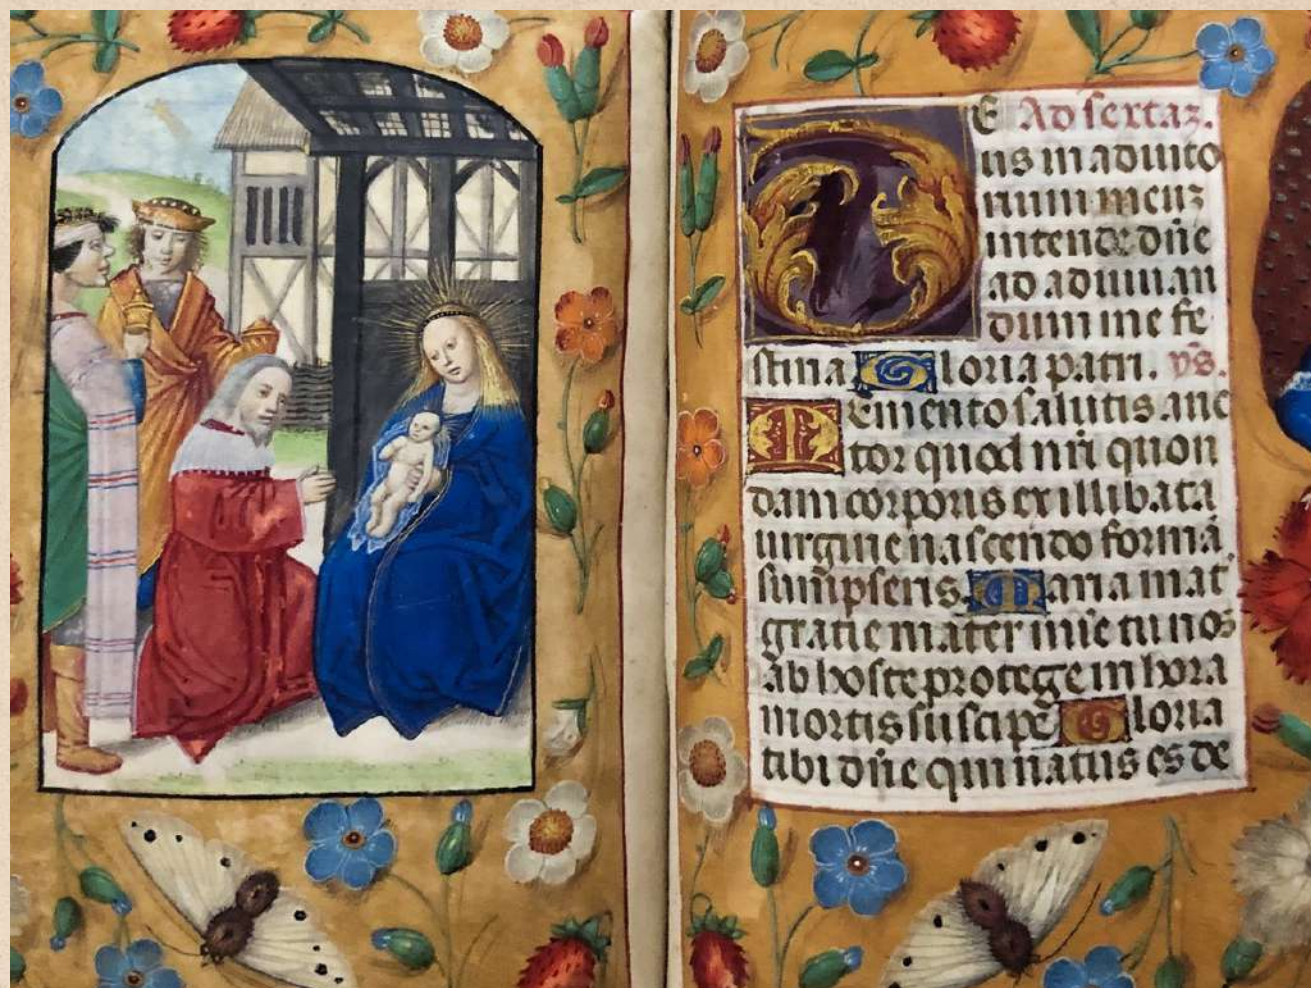 E Ad sextaz.
us in adiuto
rium meuz
intende dn̄e
ad adiuuan
dum me fe
stina Gloria patri. vs̄.
Memento salutis auc
tor quod nr̄i quon
dam corporis ex illibata
uirgine nascendo formā
sumpseris. Maria mat̄
gratie mater mīe tu nos
ab hoste protege in hora
mortis suscipe Gloria
tibi dn̄e qui natus es de